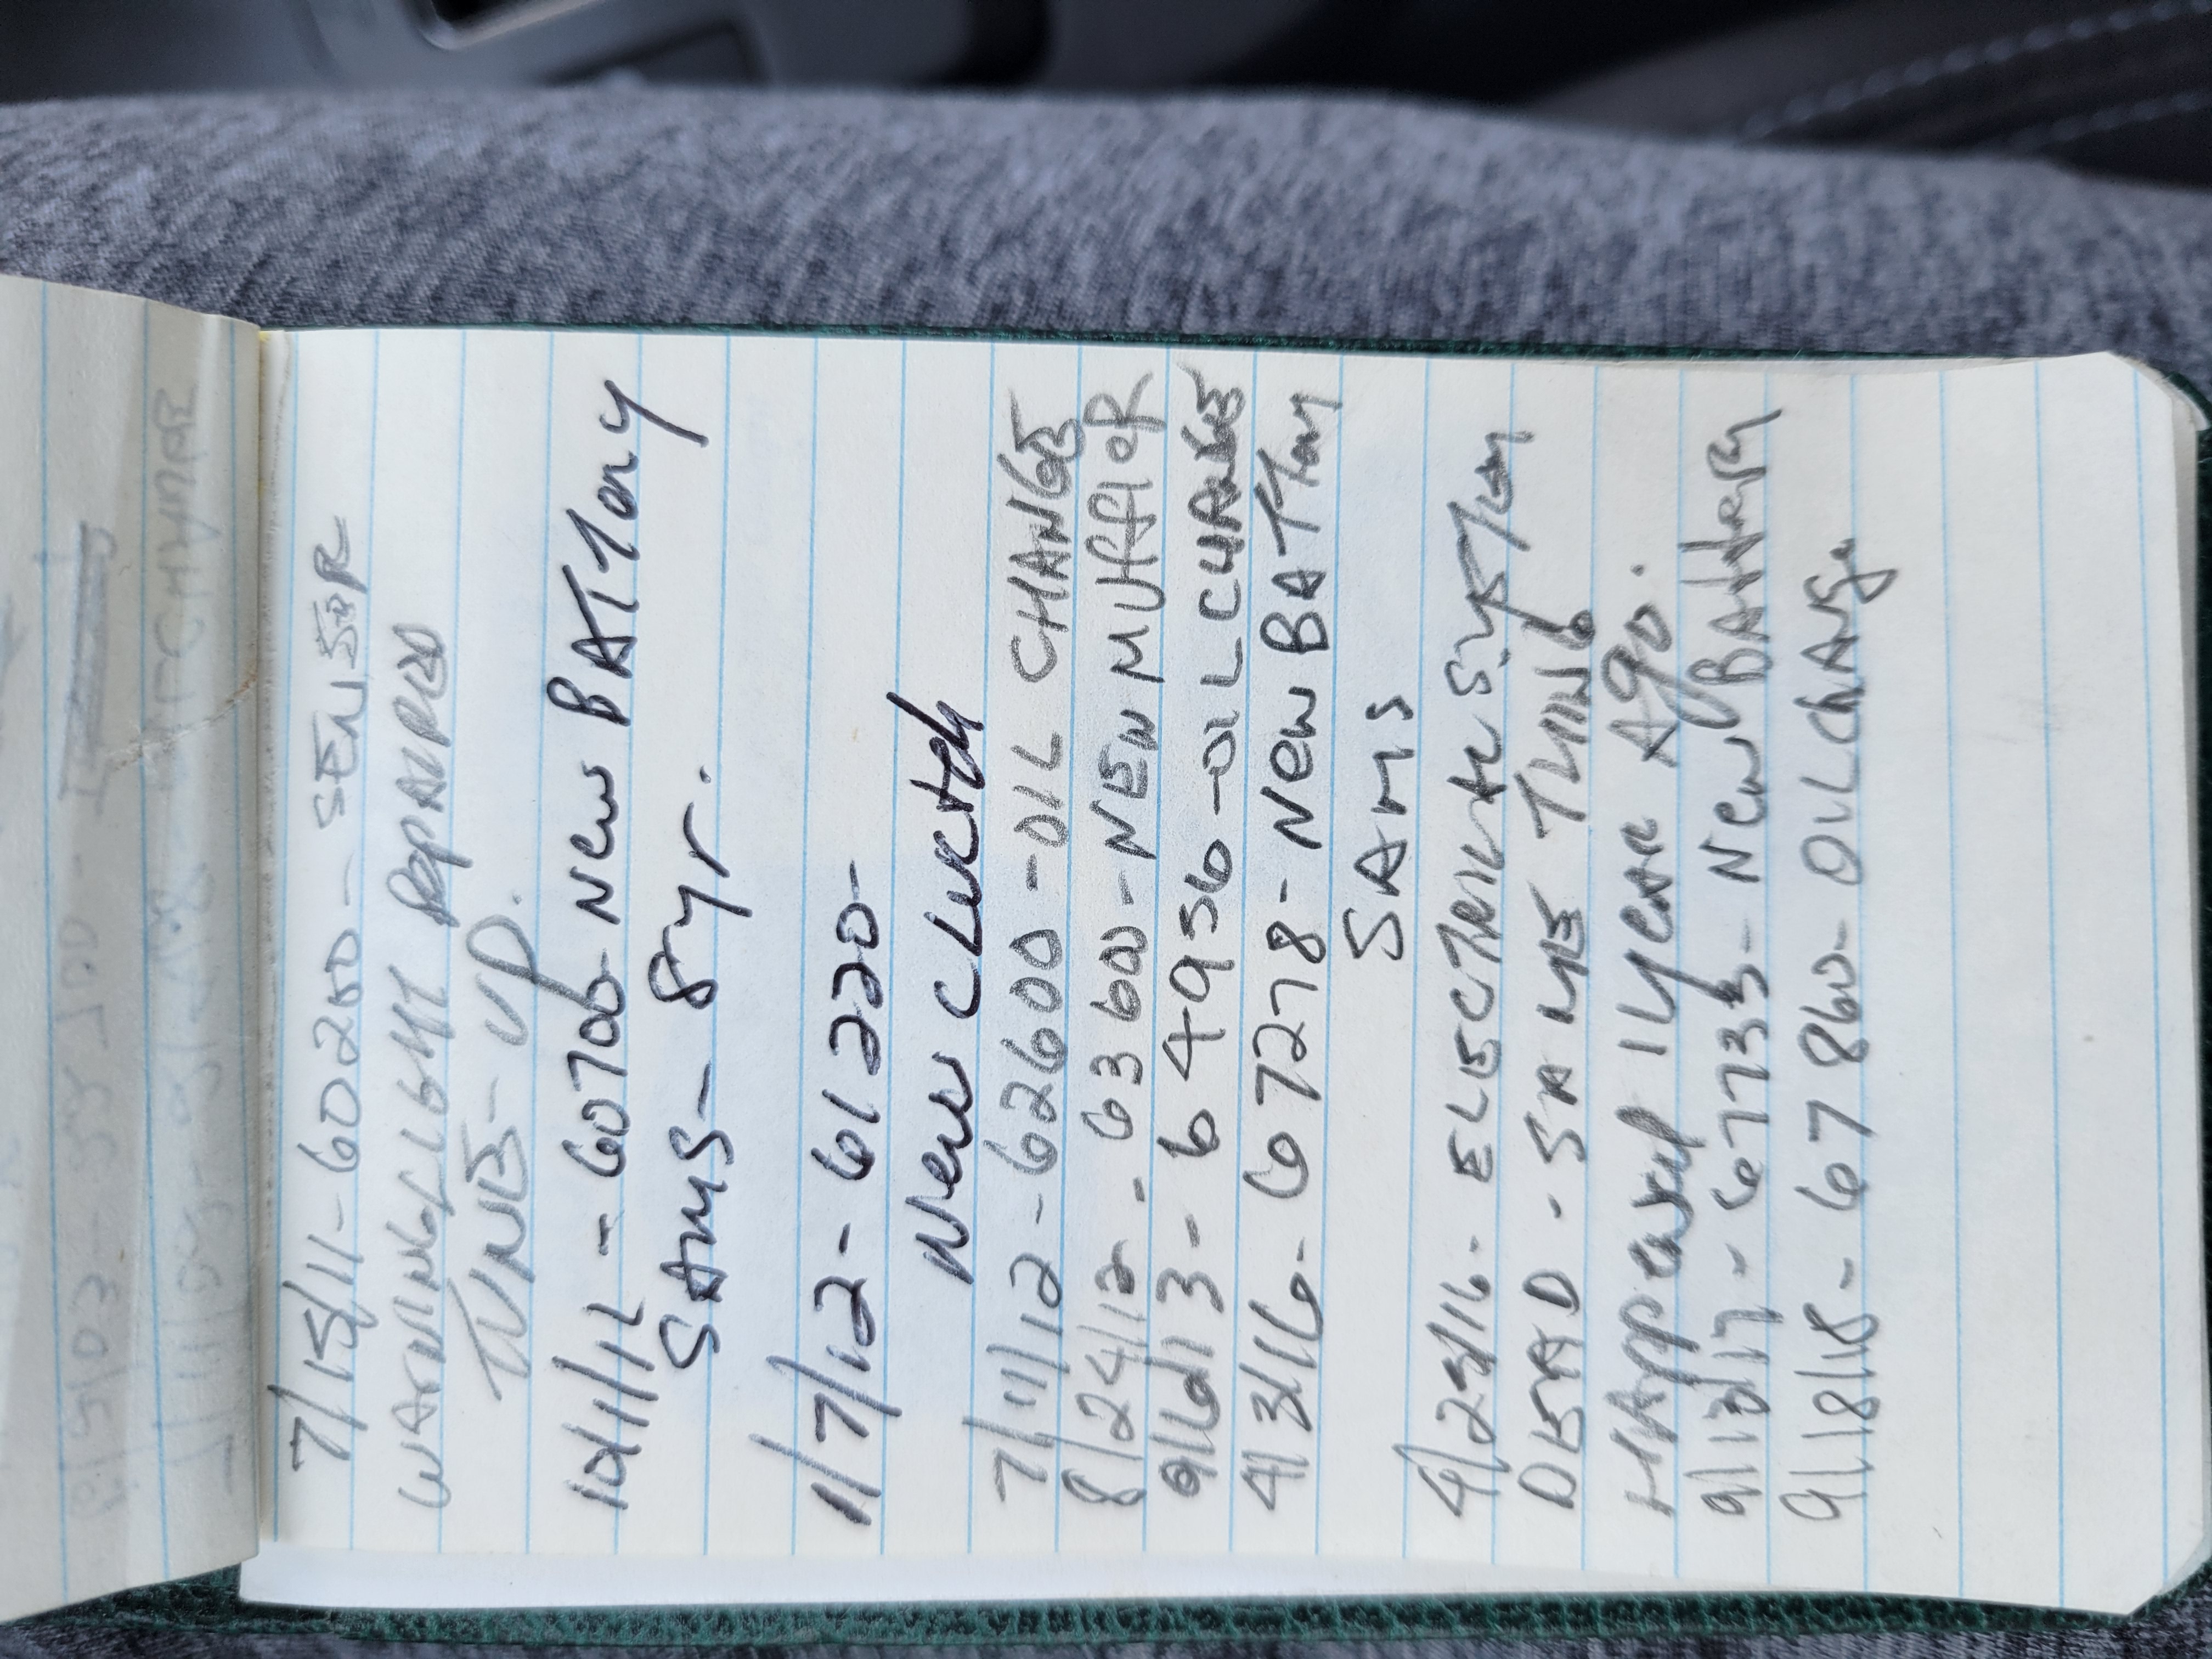 7/15/11-60200-SENSOR
WARNING LIGHT REPAIRED
TUNE-UP.
10/1/11-60700-New BATTery
SAMS-8yr.
1/7/12-61220-
New CLUCth
7/11/12-62600-OIL CHANGE
8/24/12-63600-NEW MUFFleR
9/6/13-64950-OIL CHANGE
4/3/16-67278-New BATTery
SAMS
4/23/16-ELECTRICAL SYSTem
DEAD-SAME THING
HAppened 1 YEAR Ago.
9/13/17-67735-New BAttery
9/18/18-67860-OIL CHANge